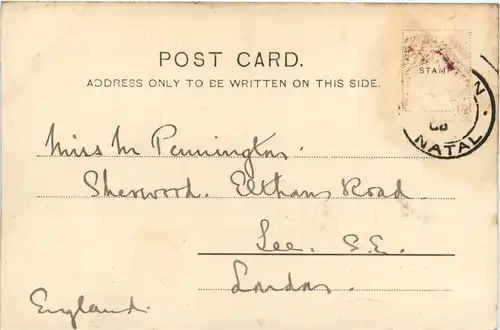 POST CARD.
ADDRESS ONLY TO BE WRITTEN ON THIS SIDE.
STAMP
N
NATAL
Miss M Pennington.
Sherwood. Eltham Road
Lee. S.E.
London.
England.